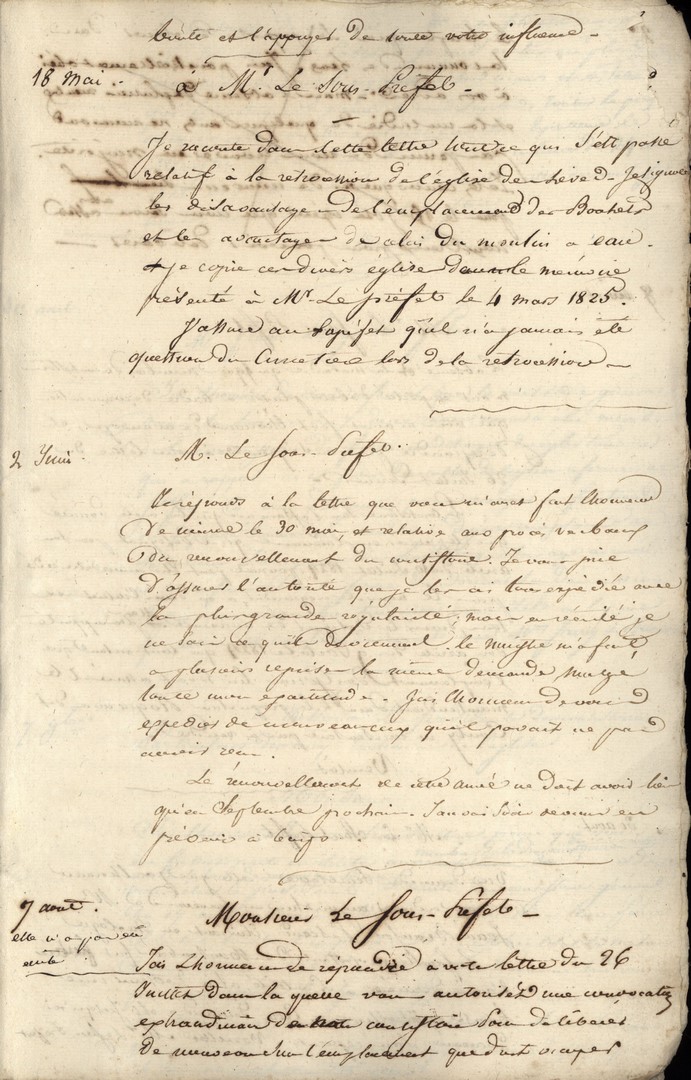 et l'appuyer de toute votre influence -
18 mai. à Mr. Le Sous Préfet -
Je raconte dans cette lettre tout ce qui s'est passé
relatif à la retrocession de l'église de - Je signale
les désavantages de l'emplacement des
et les avantages de celui du moulin à eau -
je copie ces divers église dans le mémoire
présenté à Mr. Le préfet le 4 mars 1825.
J'assure au qu'il n'a jamais été
question du Cimetière lors de la retrocession -
2 Juin. M. Le Sous-Préfet.
Je réponds à la lettre que vous m'avez fait l'honneur
de le 30 mai, et relative aux procès verbaux
du renouvellement du consistoire. Je vous prie
d'assurer l'autorité que je les ai tous expédiés avec
la plus grande régularité; mais en vérité je
ne sais ce qu'ils deviennent. le m'a fait
a plusieurs reprises la même demande malgré
toute mon exactitude. J'ai l'honneur de vous
expédier de nouveau ceux qu'il parait ne pas
avoir reçu.
Le renouvellement de cette année ne doit avoir lieu
qu'en Septembre prochain. J'aurai soin de vous en
prévenir à temps.
7 août. Monsieur Le Sous-Préfet -
elle n'a pas été
J'ai L'honneur de répondre à votre lettre du 26
Juillet dans laquelle vous autorisez une convocation
du consistoire pour délibérer
de nouveau sur l'emplacement que doit occuper